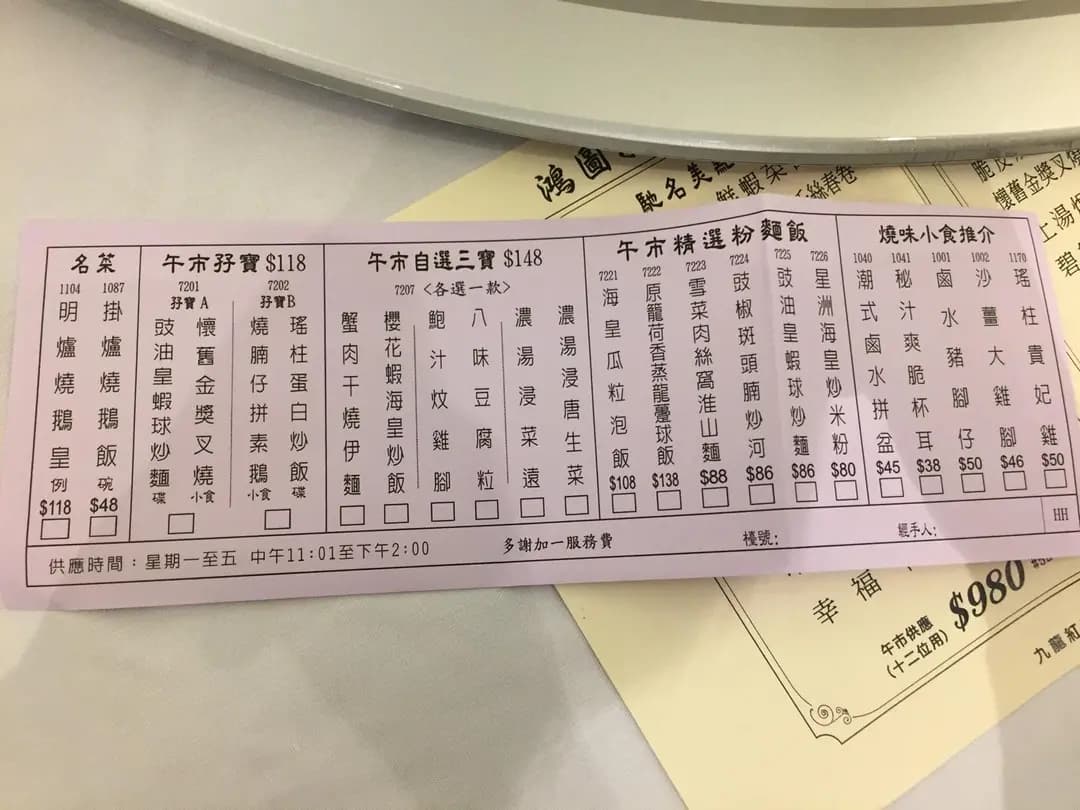 鴻圖
馳名美
鮮蝦
絲春卷
懷舊金獎叉燒
上湯
碧
名菜
1104
明爐燒鵝皇
例
$118
1087
掛爐燒鵝飯
碗
$48
午市孖寶 $118
7201
孖寶A
豉油皇蝦球炒麵
碟
懷舊金獎叉燒
小食
7202
孖寶B
燒腩仔拼素鵝
小食
瑤柱蛋白炒飯
碟
午市自選三寶 $148
7207 <各選一款>
蟹肉干燒伊麵
櫻花蝦海皇炒飯
鮑汁炆雞腳
八味豆腐粒
濃湯浸菜遠
濃湯浸唐生菜
午市精選粉麵飯
7221
海皇瓜粒泡飯
$108
7222
原籠荷香蒸龍躉球飯
$138
7223
雪菜肉絲窩淮山麵
$88
7224
豉椒斑頭腩炒河
$86
7225
豉油皇蝦球炒麵
$86
7226
星洲海皇炒米粉
$80
燒味小食推介
1040
潮式鹵水拼盆
$45
1041
秘汁爽脆杯耳
$38
1001
鹵水豬腳仔
$50
1002
沙薑大雞腳
$46
1170
瑤柱貴妃雞
$50
供應時間：星期一至五 中午11:01至下午2:00
多謝加一服務費
檯號：
經手人：
HH
幸福
午市供應
(十二位用)
$980
九龍紅